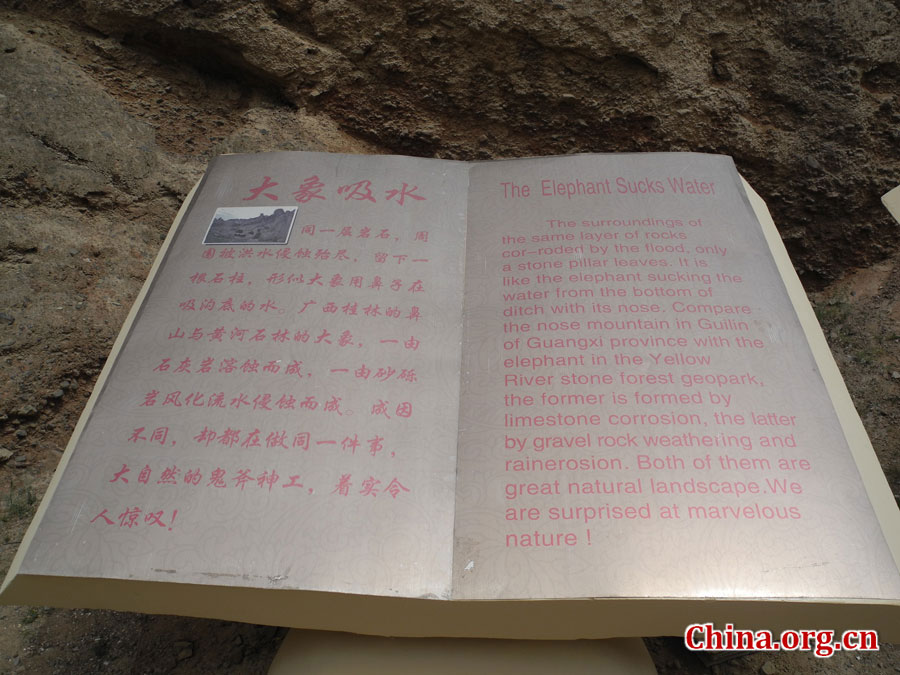 大象吸水
同一层岩石，周
围被洪水侵蚀殆尽，留下一
根石柱，形似大象用鼻子在
吸沟底的水。广西桂林的鼻
山与黄河石林的大象，一由
石灰岩溶蚀而成，一由砂砾
岩风化流水侵蚀而成。成因
不同，却都在做同一件事，
大自然的鬼斧神工，着实令
人惊叹！
The Elephant Sucks Water
The surroundings of
the same layer of rocks
cor-roded by the flood, only
a stone pillar leaves. It is
like the elephant sucking the
water from the bottom of
ditch with its nose. Compare
the nose mountain in Guilin
of Guangxi province with the
elephant in the Yellow
River stone forest geopark,
the former is formed by
limestone corrosion, the latter
by gravel rock weathering and
rainerosion. Both of them are
great natural landscape.We
are surprised at marvelous
nature !
China.org.cn